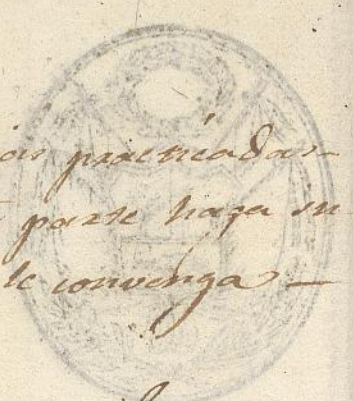 practicadas
parte haga su
le convenga